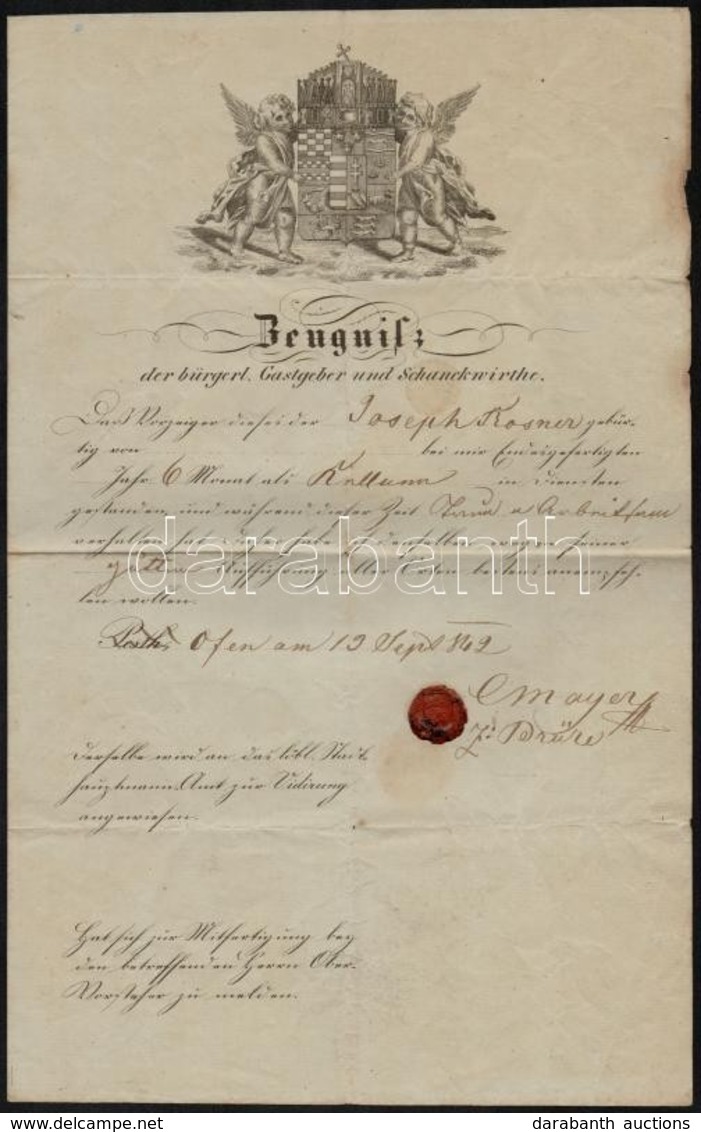 Zeugniß;
der bürgerl. Gastgeber und Schanckwirthe.
Daß Vorzeiger dieses der Joseph Rosner gebür-
tig von bei mir Endesgefertigten
Jahr 6 Monat als Kellner in Diensten
gestanden, und während dieser Zeit Treu u Arbeitsam
verhalten hat, daher habe ich denselben wegen seiner
guten Aufführung aller Orten bestens anempfeh-
len wollen.
Pesth, Ofen am 13 Sept 862
C Mayer
Z: Brüre
Derselbe wird an das löbl. Stadt-
hauptmann-Amt zur Vidirung
angewiesen.
Hat sich zur Mitfertigung bey
den betreffenden Herrn Ober-
Vorsteher zu melden.
darabanth
darabanth auctions